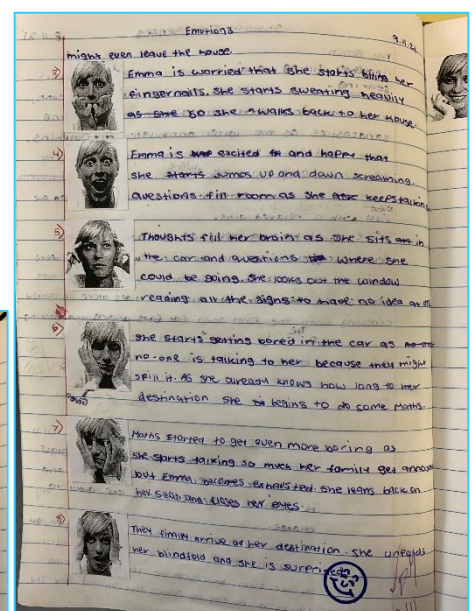 Emotions
9.11.21
might even leave the house.
3) Emma is worried that she starts biting her
fingernails. She starts sweating heavily
as she so she walks back to her house.
4) Emma is excited and happy that
she starts jumps up and down screaming.
questions fill room as she keeps talking
5) Thoughts fill her brain as she sits in
the car and questions where she
could be going. She looks out the window
reading all the signs to have no idea at all
6) She starts getting bored in the car as
no-one is talking to her because they might
spill it. As she already knows how long to her
destination she begins to do some Maths.
7) Maths started to get even more boring as
she starts talking so much her family get annoy
but Emma becomes exhausted. She leans back on
her seat and closes her eyes.
8) They finally arrive at her destination. She unfolds
her blindfold and she is surprised